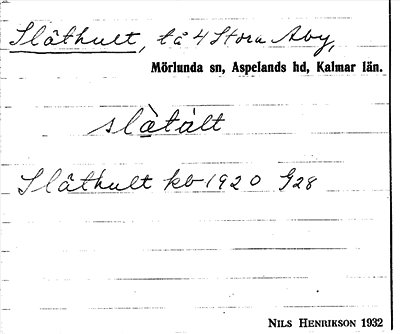 Slåthult, tå 4 Stora Aby,
Mörlunda sn, Aspelands hd, Kalmar län.
slàtált
Slåthult kb 1920 928
NILS HENRIKSON 1932